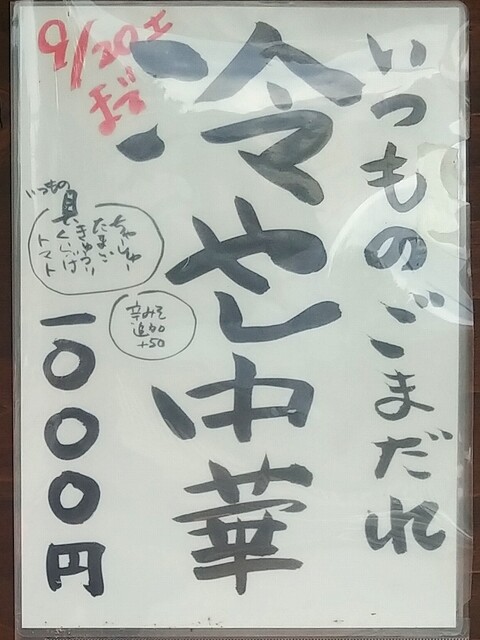 いつものごまだれ
冷やし中華
9/20土
まで
いつもの
具
ちゃーしゅー
たまご
きゅうり
くらげ
トマト
辛みそ
追加
+50
1000円